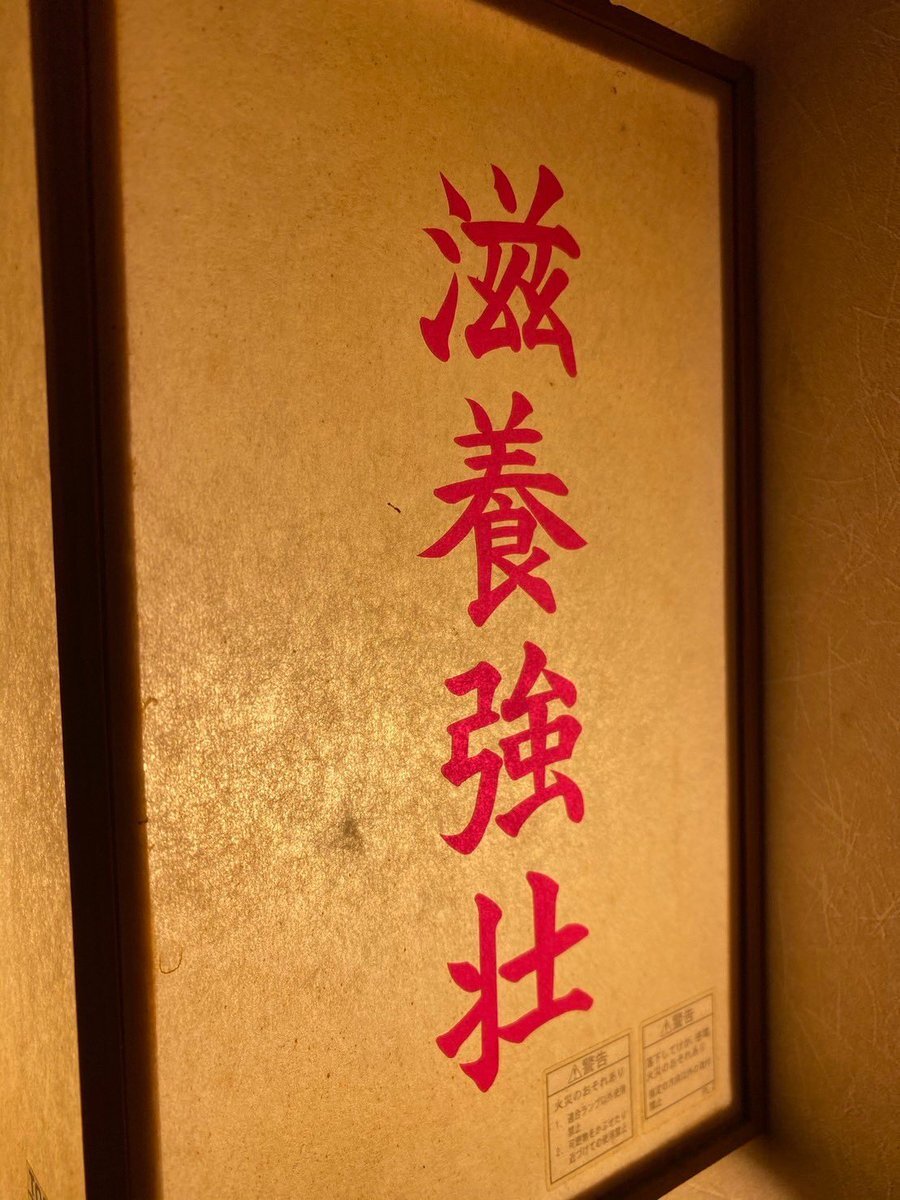 滋養強壮
⚠警告
火災のおそれあり
1. 適合ランプ以外使用
禁止
2. 可燃物をかぶせたり
近づけての使用禁止
⚠警告
落下してけが、感電
火災のおそれあり
指定の方向以外の取付
禁止